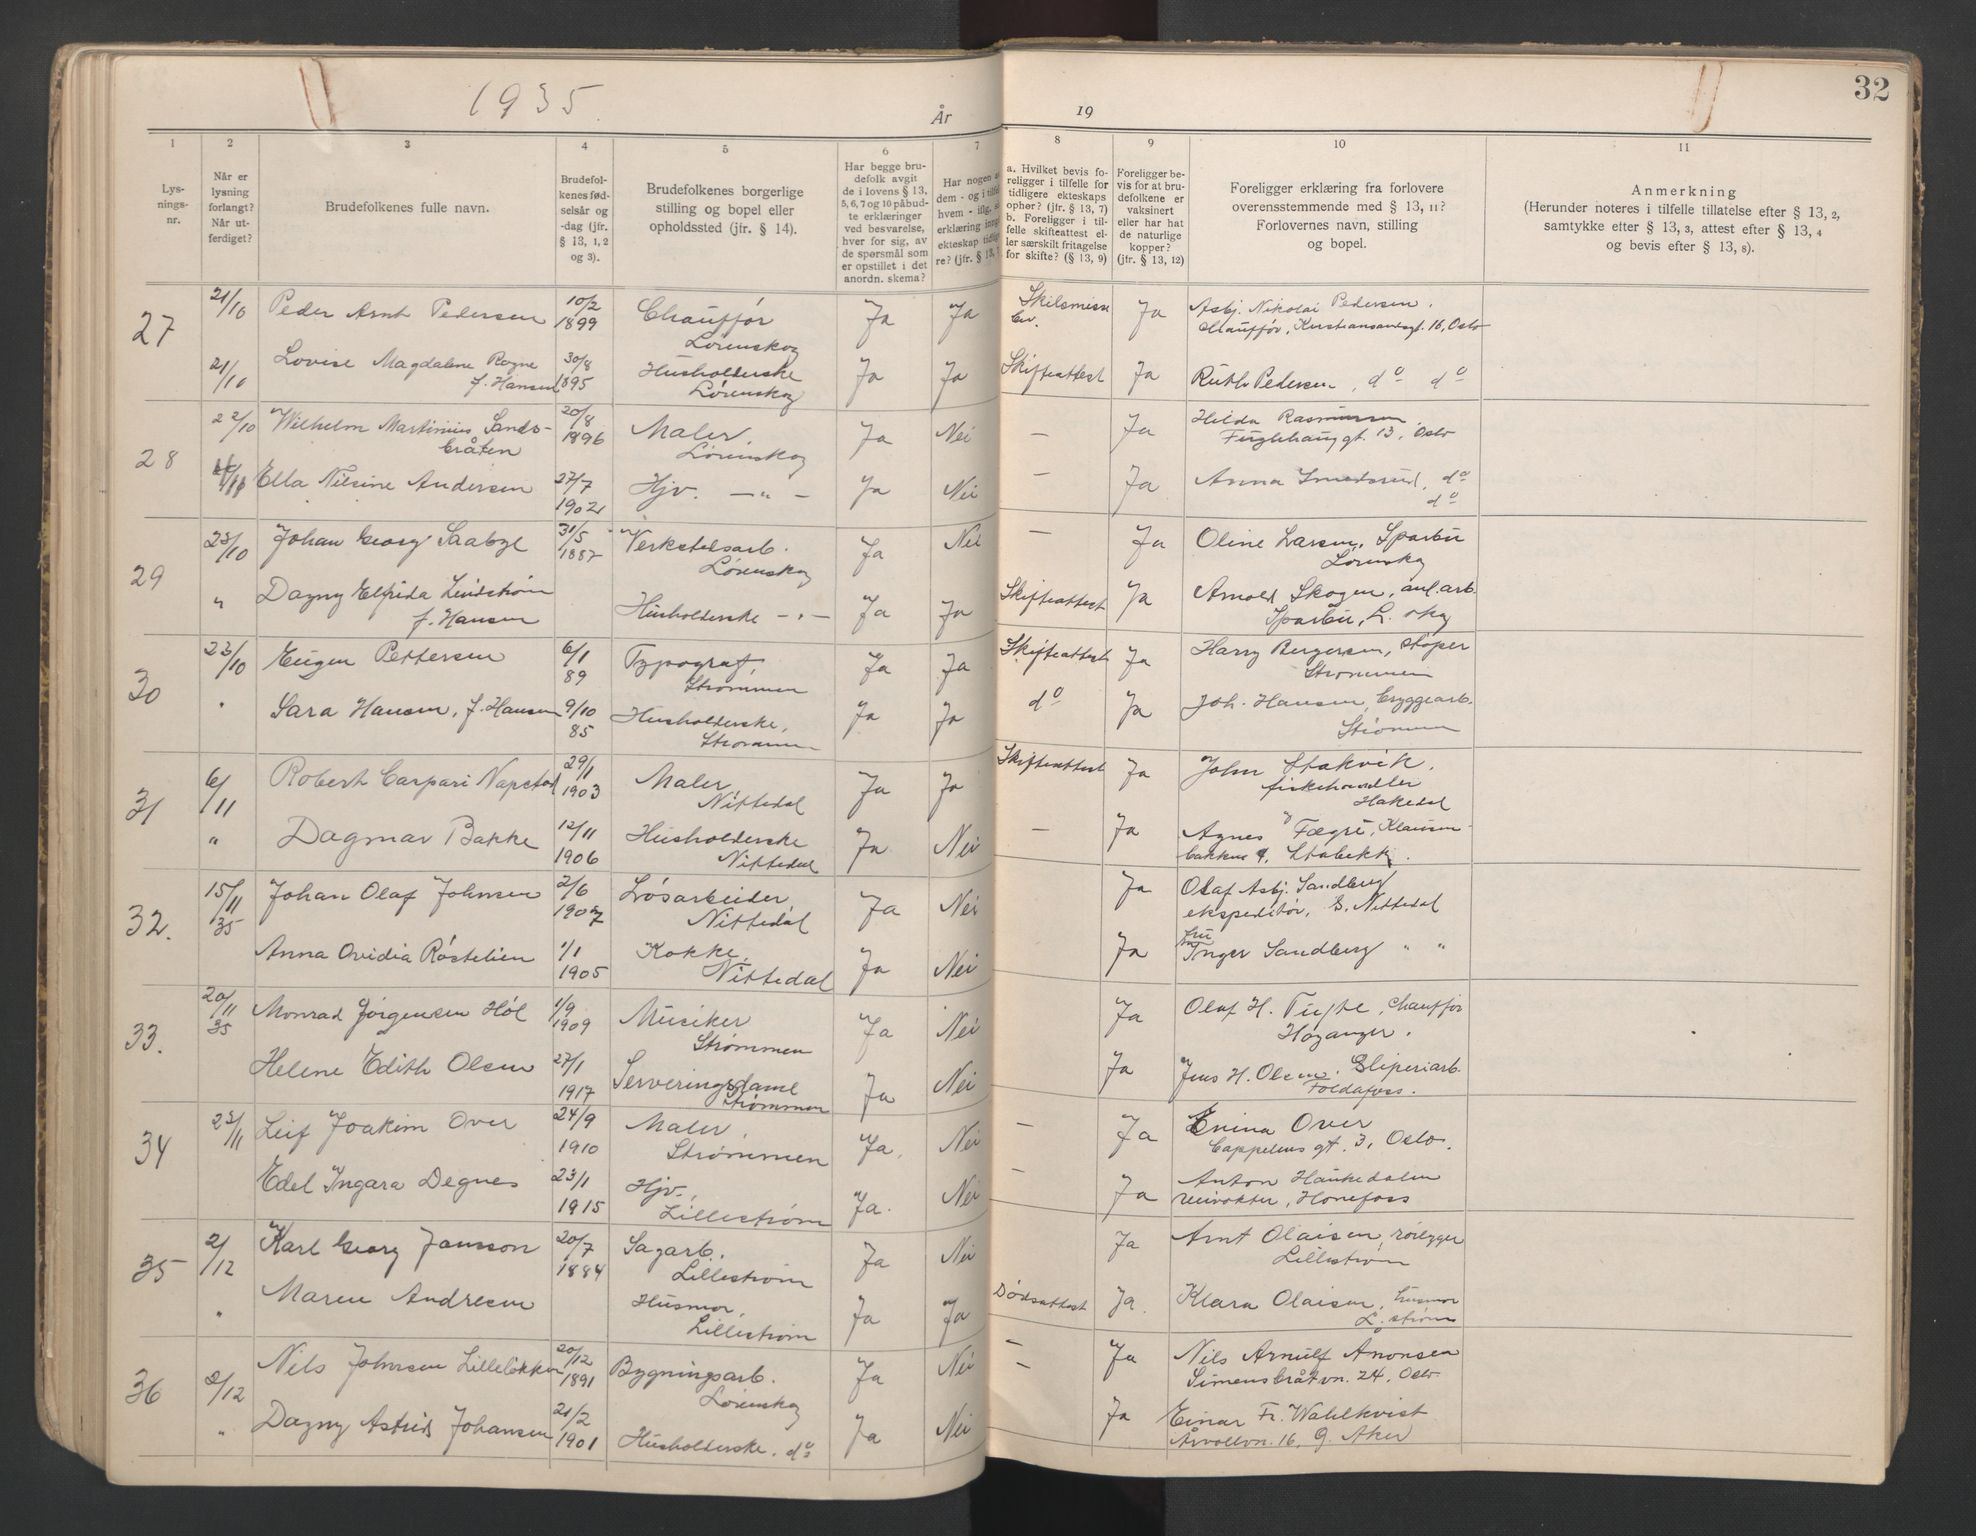 1935.
År
19
32
1
2
3
4
5
6
7
8
9
10
11
Lysningsnr.
Når er lysning forlangt? Når utferdiget?
Brudefolkenes fulle navn.
Brudefolkenes fødselsår og -dag (jfr. § 13, 1, 2 og 3).
Brudefolkenes borgerlige stilling og bopel eller opholdssted (jfr. § 14).
Har begge brudefolk avgit de i lovens § 13, 5, 6, 7 og 10 påbudte erklæringer ved besvarelse, hver for sig, av de spørsmål som er opstillet i det anordn. skema?
Har nogen a
dem - og i tilfel
hvem - iflg.
erklæring inng
ekteskap tidlig
re? (jfr. § 13, 7
a. Hvilket bevis foreligger i tilfelle for tidligere ekteskaps opher? (jfr. § 13, 7)
b. Foreligger i tilfelle skifteattest eller særskilt fritagelse for skifte? (§ 13, 9)
Foreligger bevis for at brudefolkene er vaksinert eller har hat de naturlige kopper? (jfr. § 13, 12)
Foreligger erklæring fra forlovere
overensstemmende med § 13, 11?
Forlovernes navn, stilling
og bopel.
Anmerkning
(Herunder noteres i tilfelle tillatelse efter § 13, 2,
samtykke efter § 13, 3, attest efter § 13, 4
og bevis efter § 13, 8).
27 21/10 Peder Arnt Pedersen 10/2 1899 Chauffør Lørenskog Ja Ja Skilsmisse bev. Ja Asbj. Nikolai Pedersen, Chauffør, Kristiansandsgt. 16, Oslo
21/10 Lovise Magdalene Rogne f. Hansen 30/8 1895 Husholderske Lørenskog Ja Ja Skifteattest Ja Ruth Pedersen, do do
28 22/10 Wilhelm Martinius Sandsbråten 20/8 1896 Maler, Lørenskog Ja Nei — Ja Hilda Rasmussen Fuglehauggt. 13, Oslo
Ella Nilsine Andersen 27/7 1902 Hjv. —„— Ja Nei — Ja Anna Smedsrud, do do
29 23/10 Johan Georg Saabye 31/5 1887 Verkstedsarb. Lørenskog Ja Nei — Ja Oline Larsen, Sparbu Lørenskog
„ Dagny Elfrida Lindstrøm f. Hansen Husholderske —„— Ja Ja Skifteattest Ja Arnold Skogen, anl.arb. Sparbu, L.skog
30 23/10 Eugen Pettersen 6/1 89 Typograf, Strømmen Ja Ja Skifteattest Ja Harry Bergersen, støper Strømmen
„ Sara Hansen, f. Hansen 9/10 85 Husholderske, Strømmen Ja Ja do Ja Joh. Hansen, bryggearb. Strømmen
31 6/11 Robert Caspari Napstad 29/1 1903 Maler, Nittedal Ja Ja Skifteattest Ja John Stakvik, fiskehandler Hakedal
„ Dagmar Bakke 12/11 1906 Husholderske Nittedal Ja. Nei — Ja Agnes Fægri, Klausenbakken 9, Stabekk.
32. 15/11 35 Johan Olaf Johnsen 2/6 1907 Løsarbeider Nittedal Ja Nei Ja Olaf Asbj. Sandberg ekspeditør, S. Nittedal
Anna Ovidia Røstelien 1/1 1905 Kokke, Nittedal Ja Nei Ja fru Inger Sandberg „ „
33. 20/11 35 Monrad Jørgensen Høl 1/9 1909 Musiker Strømmen Ja Nei Ja Olaf H. Tufte, Chauffør Høyanger.
Helene Edith Olsen 27/1 1917 Serveringsdame Strømmen Ja Nei Ja Jens H. Olsen. Sliperiarb. Foldafoss.
34 23/11 Leif Joakim Over 24/9 1910 Maler, Strømmen Ja. Nei — Ja Enina Over Cappelens gt. 3, Oslo.
Edel Ingara Degnes 23/1 1915 Hjv., Lillestrøm Ja. Nei — Ja Anton Haukedalen veivokter, Hønefoss
35 2/12 Karl Georg Jansson 20/7 1884 Sagarb. Lillestrøm Ja Nei Ja Arnt Olaisen, rørlegger Lillestrøm
„ Maren Andresen Husmor, Lillestrøm Ja Ja Dødsattest Ja. Klara Olaisen, husmor L.strøm
36 2/12 Nils Johnsen Lilleløkken 20/12 1891 Bygningsarb. Lørenskog Ja Nei — — Ja Nils Arnulf Anonsen Simensbråtvn. 24, Oslo
„ Dagny Astrid Johansen 21/2 1901 Husholderske. do Ja Nei Ja Einar Fr. Wahlkvist Årvollvn. 16, Ø. Aker